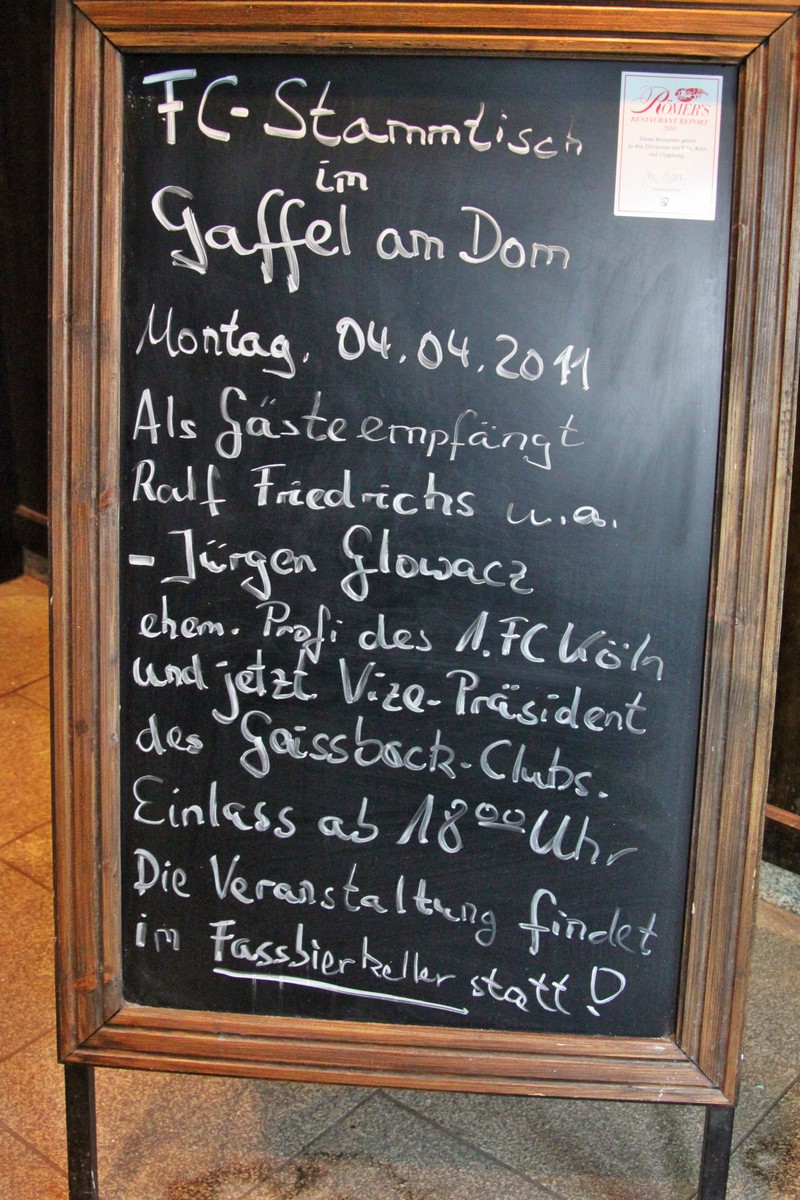 FC-Stammtisch
im
Gaffel am Dom
Montag, 04.04.2011
Als Gäste empfängt
Ralf Friedrichs u.a.
- Jürgen Glowacz
ehem. Profi des 1. FC Köln
und jetzt Vize-Präsident
des Gaissbock-Clubs.
Einlass ab 18 00 Uhr
Die Veranstaltung findet
im Fassbierkeller statt!
RÖMER'S
RESTAURANT REPORT